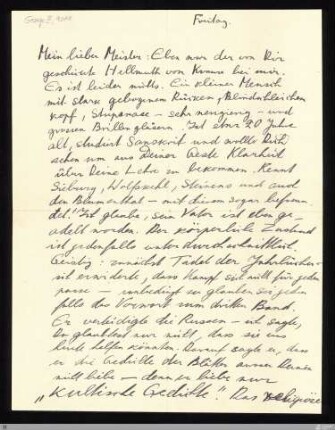 Freitag.
Mein lieber Meister: Eben war der von Dir
geschickte Hellmuth von            bei mir.
Es ist leider nichts. Ein kleiner Mensch
mit stark gebogenem Rücken, Blindschleichen
kopf, Stupsnase – sehr neugierig – und
grossen Brillengläsern. Ist etwa 20 Jahre
alt, studiert Sanskrit und wollte
                 aus Deiner Geste Klarheit
über Deine Lehre zu bekommen. Kennt
Sieburg, Wolfskehl,            und auch
den Blumenthal – mit diesem sogar befreun
det! Ich glaube, sein Vater ist eben ge-
adelt worden. Der körperliche Zustand
ist jedenfalls unter Durchschnittlich.
Geistig: zunächst Tadel der Jahrbücher
ich erwiderte, dass Kampf sich nicht für jeden
passe – unbedingt zu glauben sei jeden
falls das Vorwort zum dritten Band.
Er verteidigte die Russen – ich sagte,
             nur nicht, dass sie uns
heute helfen könnten. Darauf sagte er, dass
er die Gedichte der Blätter
nicht liebe – denn er liebe nur
„kultische Gedichte“. Das religiöse